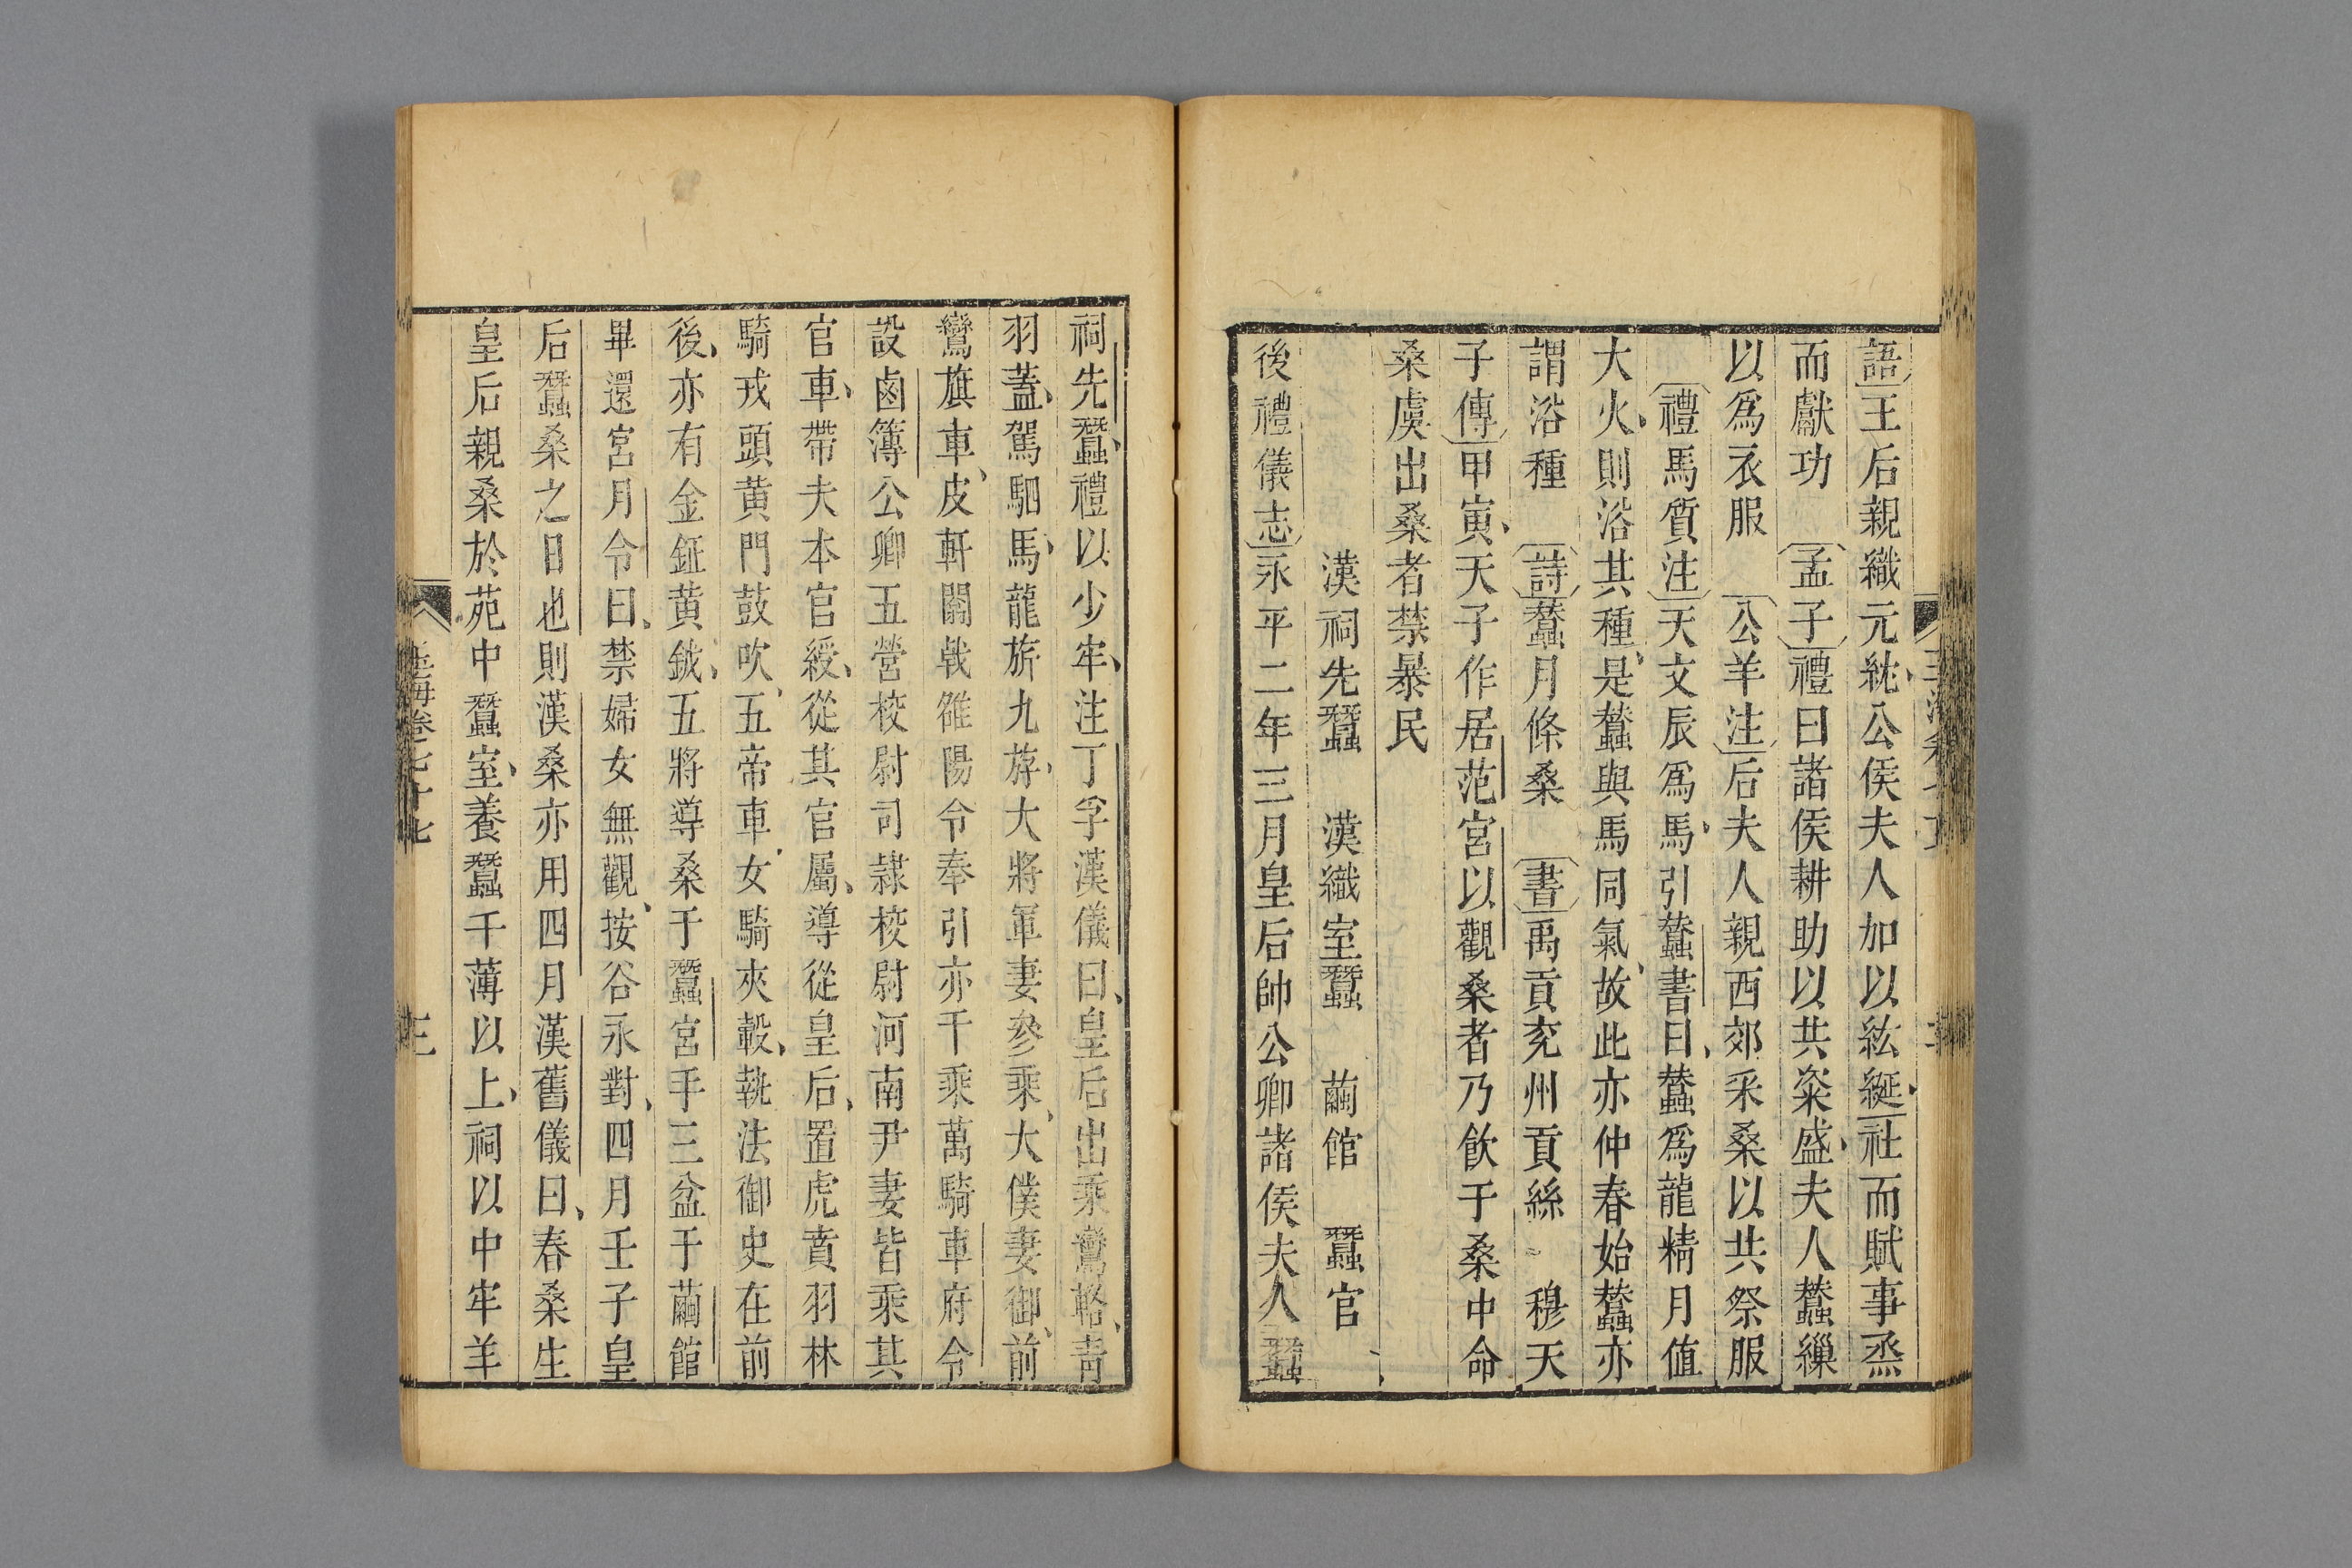 語王后親織元紞公侯夫人加以紘綖社而賦事烝
而獻功　孟子禮曰諸侯耕助以共粢盛夫人蠶繅
以爲衣服　公羊注后夫人親西郊采桑以共祭服
禮馬質注天文辰爲馬引蠶書曰蠶爲龍精月値
大火則浴其種是蠶與馬同氣故此亦仲春始蠶亦
謂浴種　詩蠶月條桑　書禹貢兖州貢絲　穆天
子傳甲寅天子作居范宮以觀桑者乃飮于桑中命
桑虞出桑者禁暴民
漢祠先蠶　漢織室蠶　繭館　蠶官
後禮儀志永平二年三月皇后帥公卿諸侯夫人蠶
祠先蠶禮以少牢注丁孚漢儀曰皇后出乘鸞輅靑
羽蓋駕駟馬龍旂九斿大將軍妻參乘大僕妻御前
鸞旗車皮軒闟戟雒陽令奉引亦千乘萬騎車府令
設鹵簿公卿五營校尉司隷校尉河南尹妻皆乘其
官車帶夫本官綬從其官屬導從皇后置虎賁羽林
騎戎頭黃門鼓吹五帝車女騎夾轂執法御史在前
後亦有金鉦黃鉞五將導桑于蠶宮手三盆于繭館
畢還宮月令曰禁婦女無觀按谷永對四月壬子皇
后蠶桑之日也則漢桑亦用四月漢舊儀曰春桑生
皇后親桑於苑中蠶室養蠶千薄以上祠以中牢羊
玉海卷七十七
三